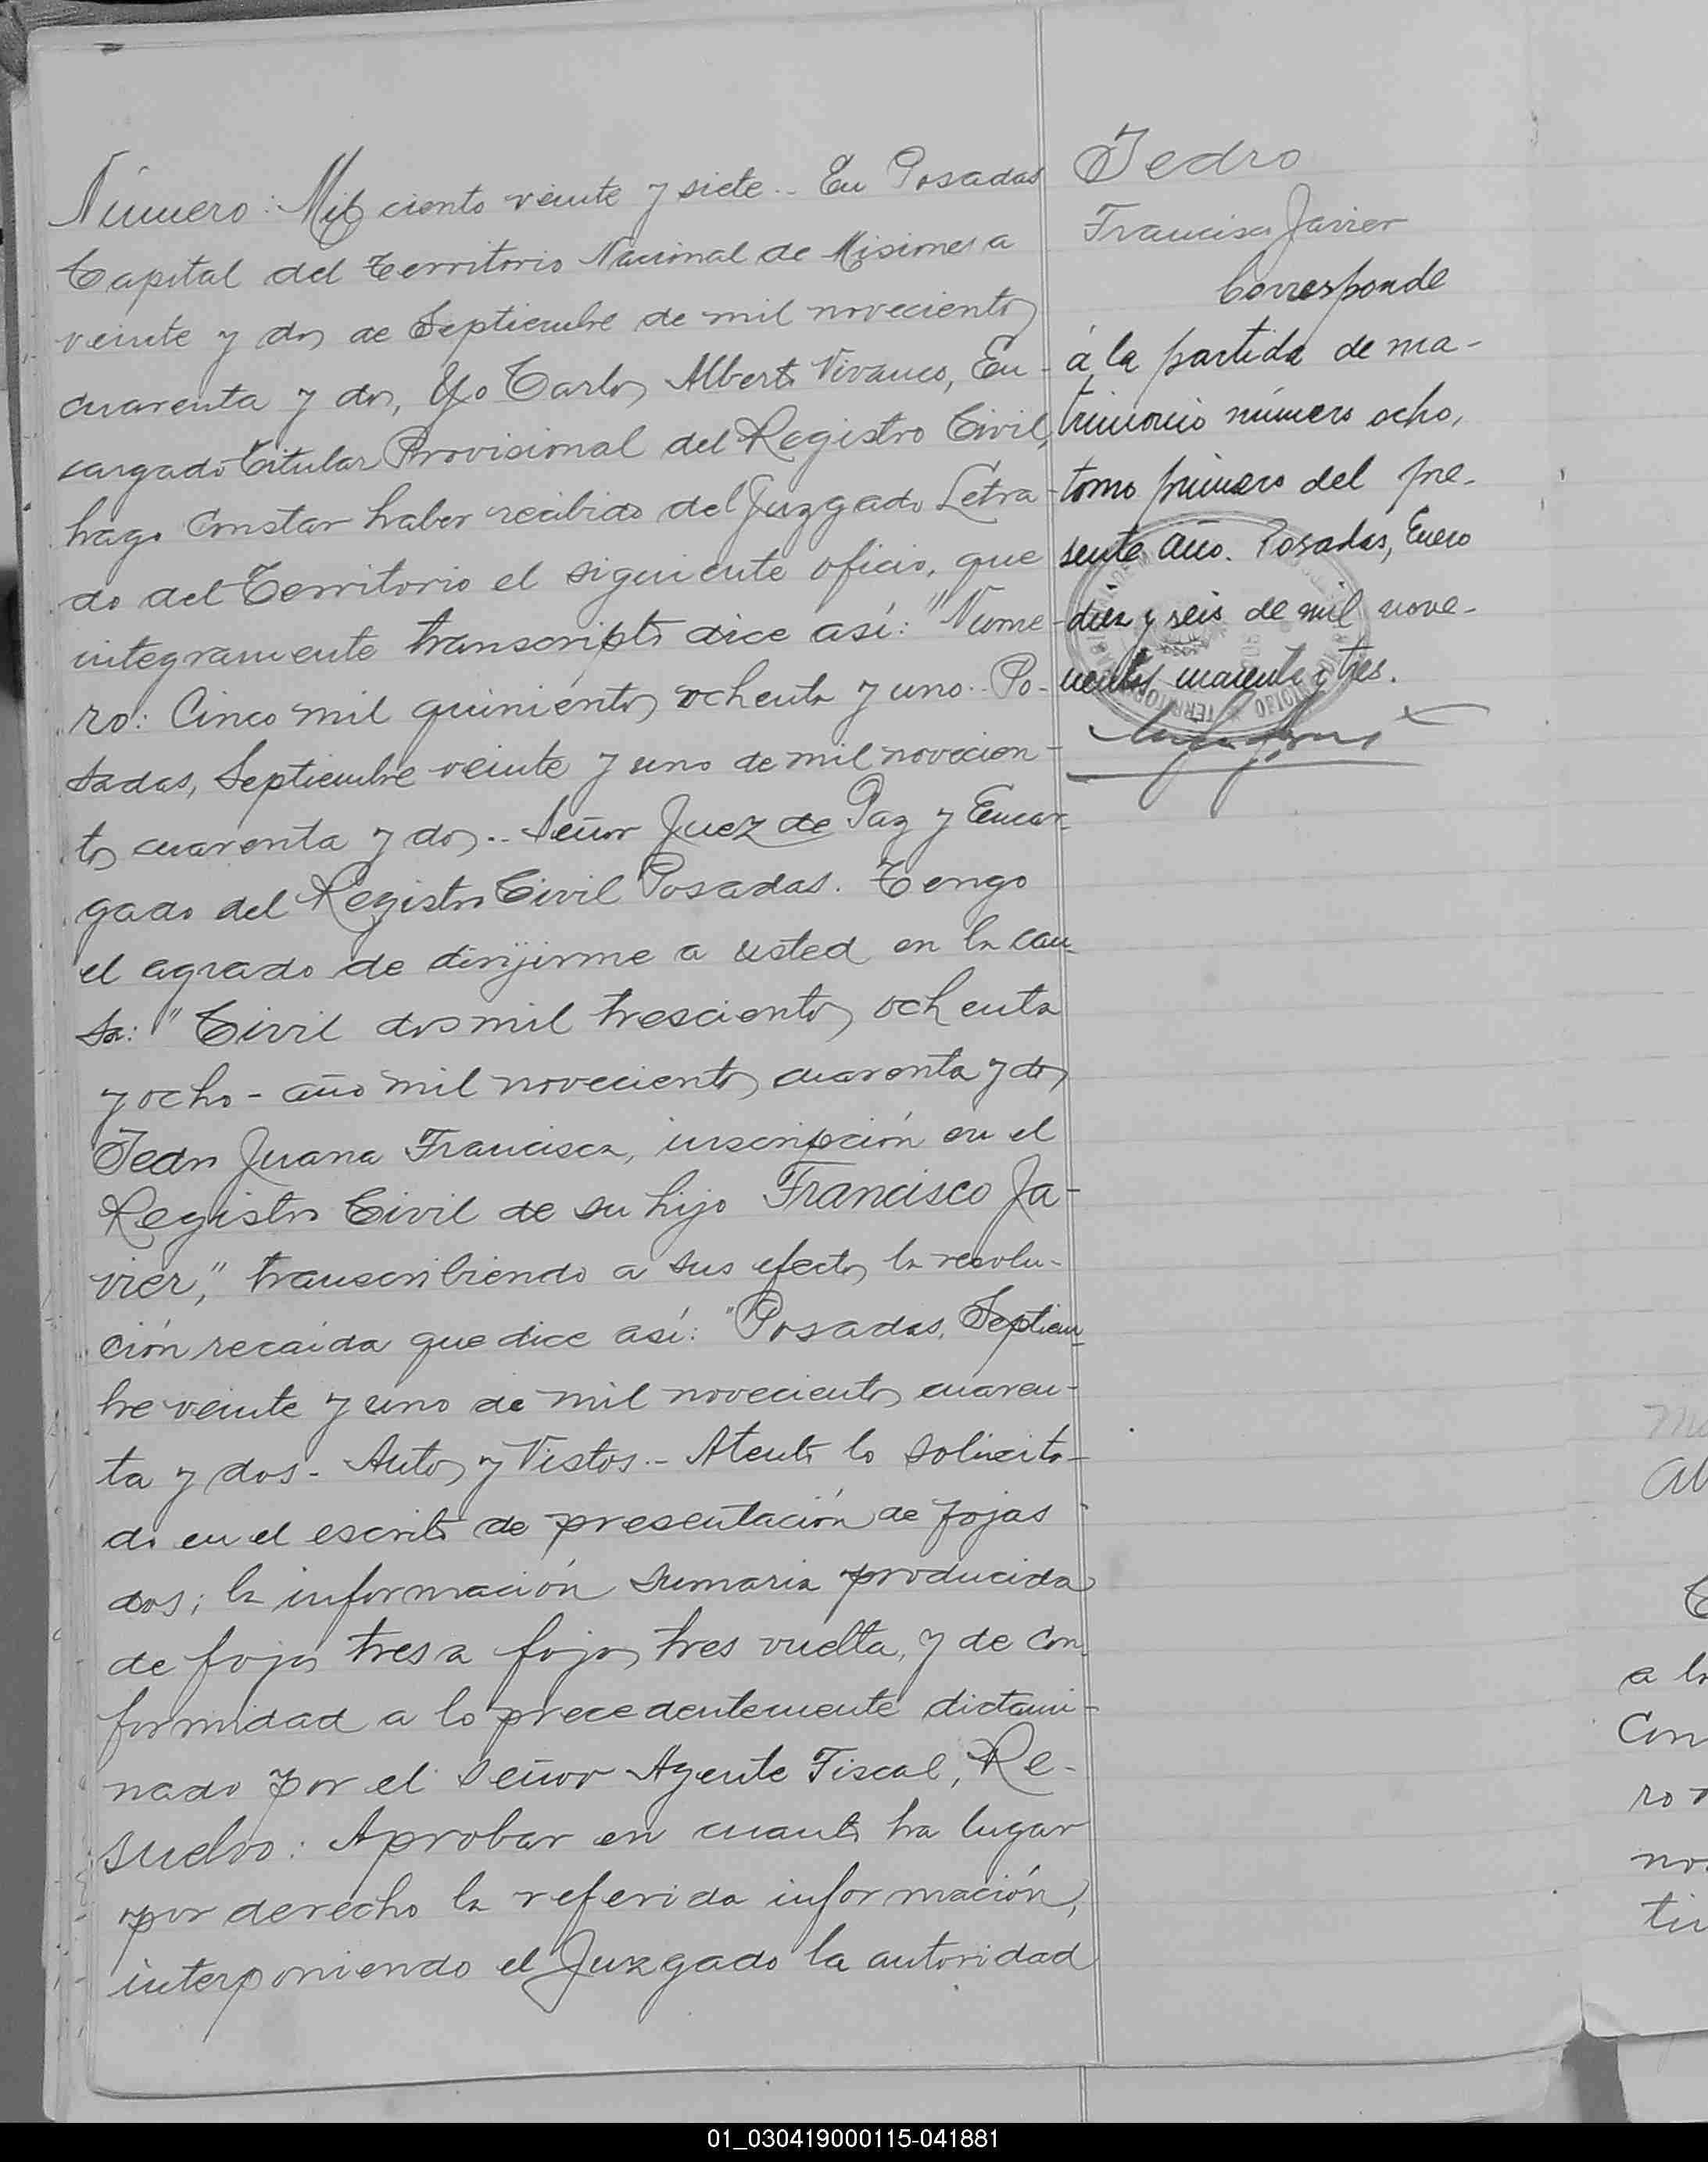 Número: Mil ciento veinte y siete.. En Posadas
Capital del Territorio Nacional de Misiones a
veinte y dos de Septiembre de mil novecientos
cuarenta y dos, Yo Carlos Alberto Vivanco, En-
cargado Titular Provisional del Registro Civil,
hago Constar haber recibido del Juzgado Letra-
do del Territorio el siguiente oficio, que
integramente transcripto dice así: "Nume-
ro: Cinco mil quinientos ochenta y uno.. Po-
sadas, Septiembre veinte y uno de mil novecien-
tos cuarenta y dos.. Señor Juez de Paz y Encar-
gado del Registro Civil Posadas. Tengo
el agrado de dirijirme a usted en la cau-
sa: "Civil dos mil trescientos ochenta
y ocho - año mil novecientos cuarenta y dos
Juana Francisca, inscripción en el
Registro Civil de su hijo Francisco Ja-
vier," transcribiendo a sus efectos la resolu-
ción recaída que dice así: "Posadas, Septiem-
bre veinte y uno de mil novecientos cuaren-
ta y dos - Autos y Vistos.- Atento lo solicita-
do en el escrito de presentación de fojas
dos; la información sumaria producida
de fojas tres a fojas tres vuelta, y de con-
formidad a lo precedentemente dictami-
nado por el Señor Agente Fiscal, Re-
suelvo: Aprobar en cuanto ha lugar
por derecho la referida información,
interponiendo el Juzgado la autoridad
Francisco Javier
Corresponde
á la partida de ma-
trimonio número ocho,
tomo primero del pre-
sente año. Posadas, Enero
diez y seis de mil nove-
cientos cuarenta y tres.
a la
Con
no
01_030419000115-041881